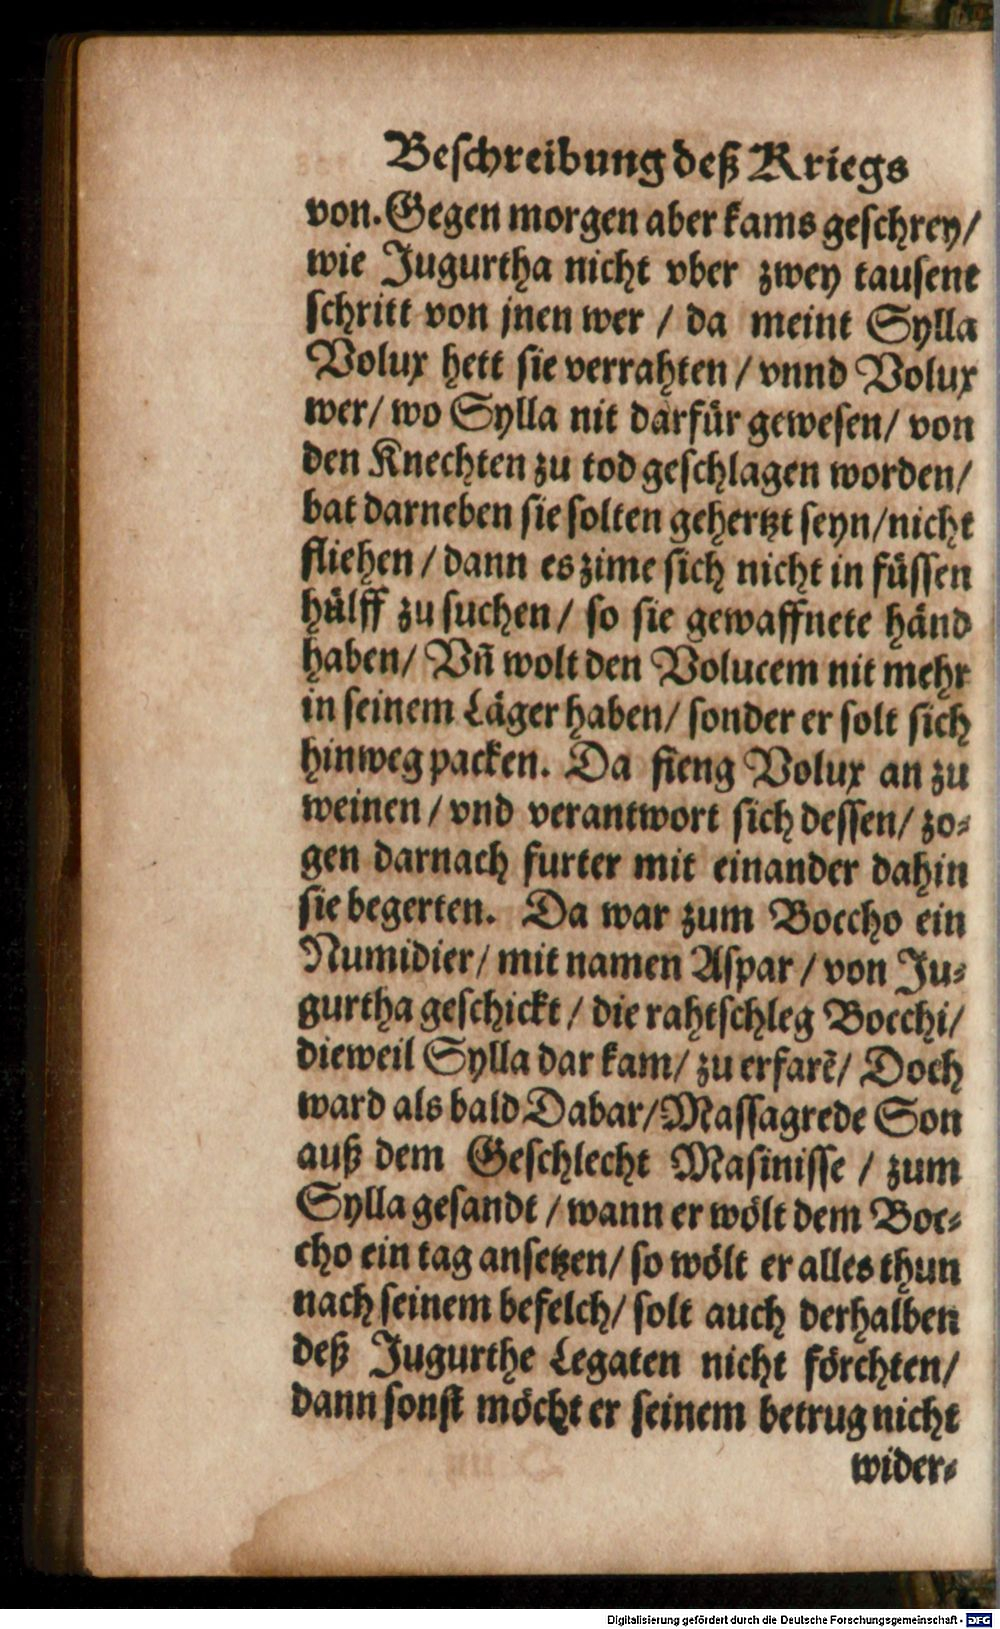 Beschreibung deß Kriegs
von. Gegen morgen aber kams geschrey/
wie Jugurtha nicht vber zwey tausent
schritt von jnen wer / da meint Sylla
Volux hett sie verrahten / vnnd Volux
wer/ wo Sylla nit darfür gewesen/ von
den Knechten zu tod geschlagen worden/
bat darneben sie solten gehertzt seyn/nicht
fliehen / dann es zime sich nicht in füssen
hülff zu suchen / so sie gewaffnete händ
haben/ Vñ wolt den Volucem nit mehr
in seinem Läger haben/ sonder er solt sich
hinweg packen. Da fieng Volux an zu
weinen / vnd verantwort sich dessen/ zo-
gen darnach furter mit einander dahin
sie begerten. Da war zum Boccho ein
Numidier/ mit namen Aspar / von Ju-
gurtha geschickt / die rahtschleg Bocchi/
dieweil Sylla dar kam/ zu erfarẽ/ Doch
ward als bald Dabar/Massagrede Son
auß dem Geschlecht Masinisse / zum
Sylla gesandt / wann er wölt dem Boc-
cho ein tag ansetzen/ so wölt er alles thun
nach seinem befelch/ solt auch derhalben
deß Jugurthe Legaten nicht förchten/
dann sonst möcht er seinem betrug nicht
wider-
Digitalisierung gefördert durch die Deutsche Forschungsgemeinschaft - DFG